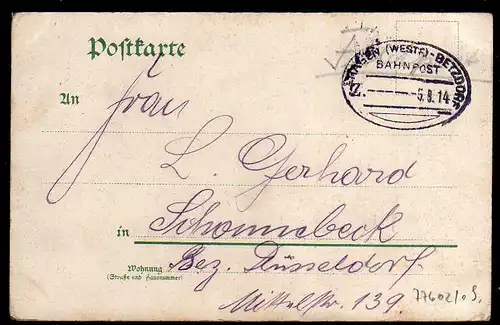 Postkarte
HAGEN (WESTF)-BETZDORF
BAHNPOST
Z. 5.8.14
An Frau
L. Gerhard
in Schonnebeck
Wohnung Bez. Düsseldorf
(Straße und Hausnummer)
Mittelstr. 139.
77602/09.